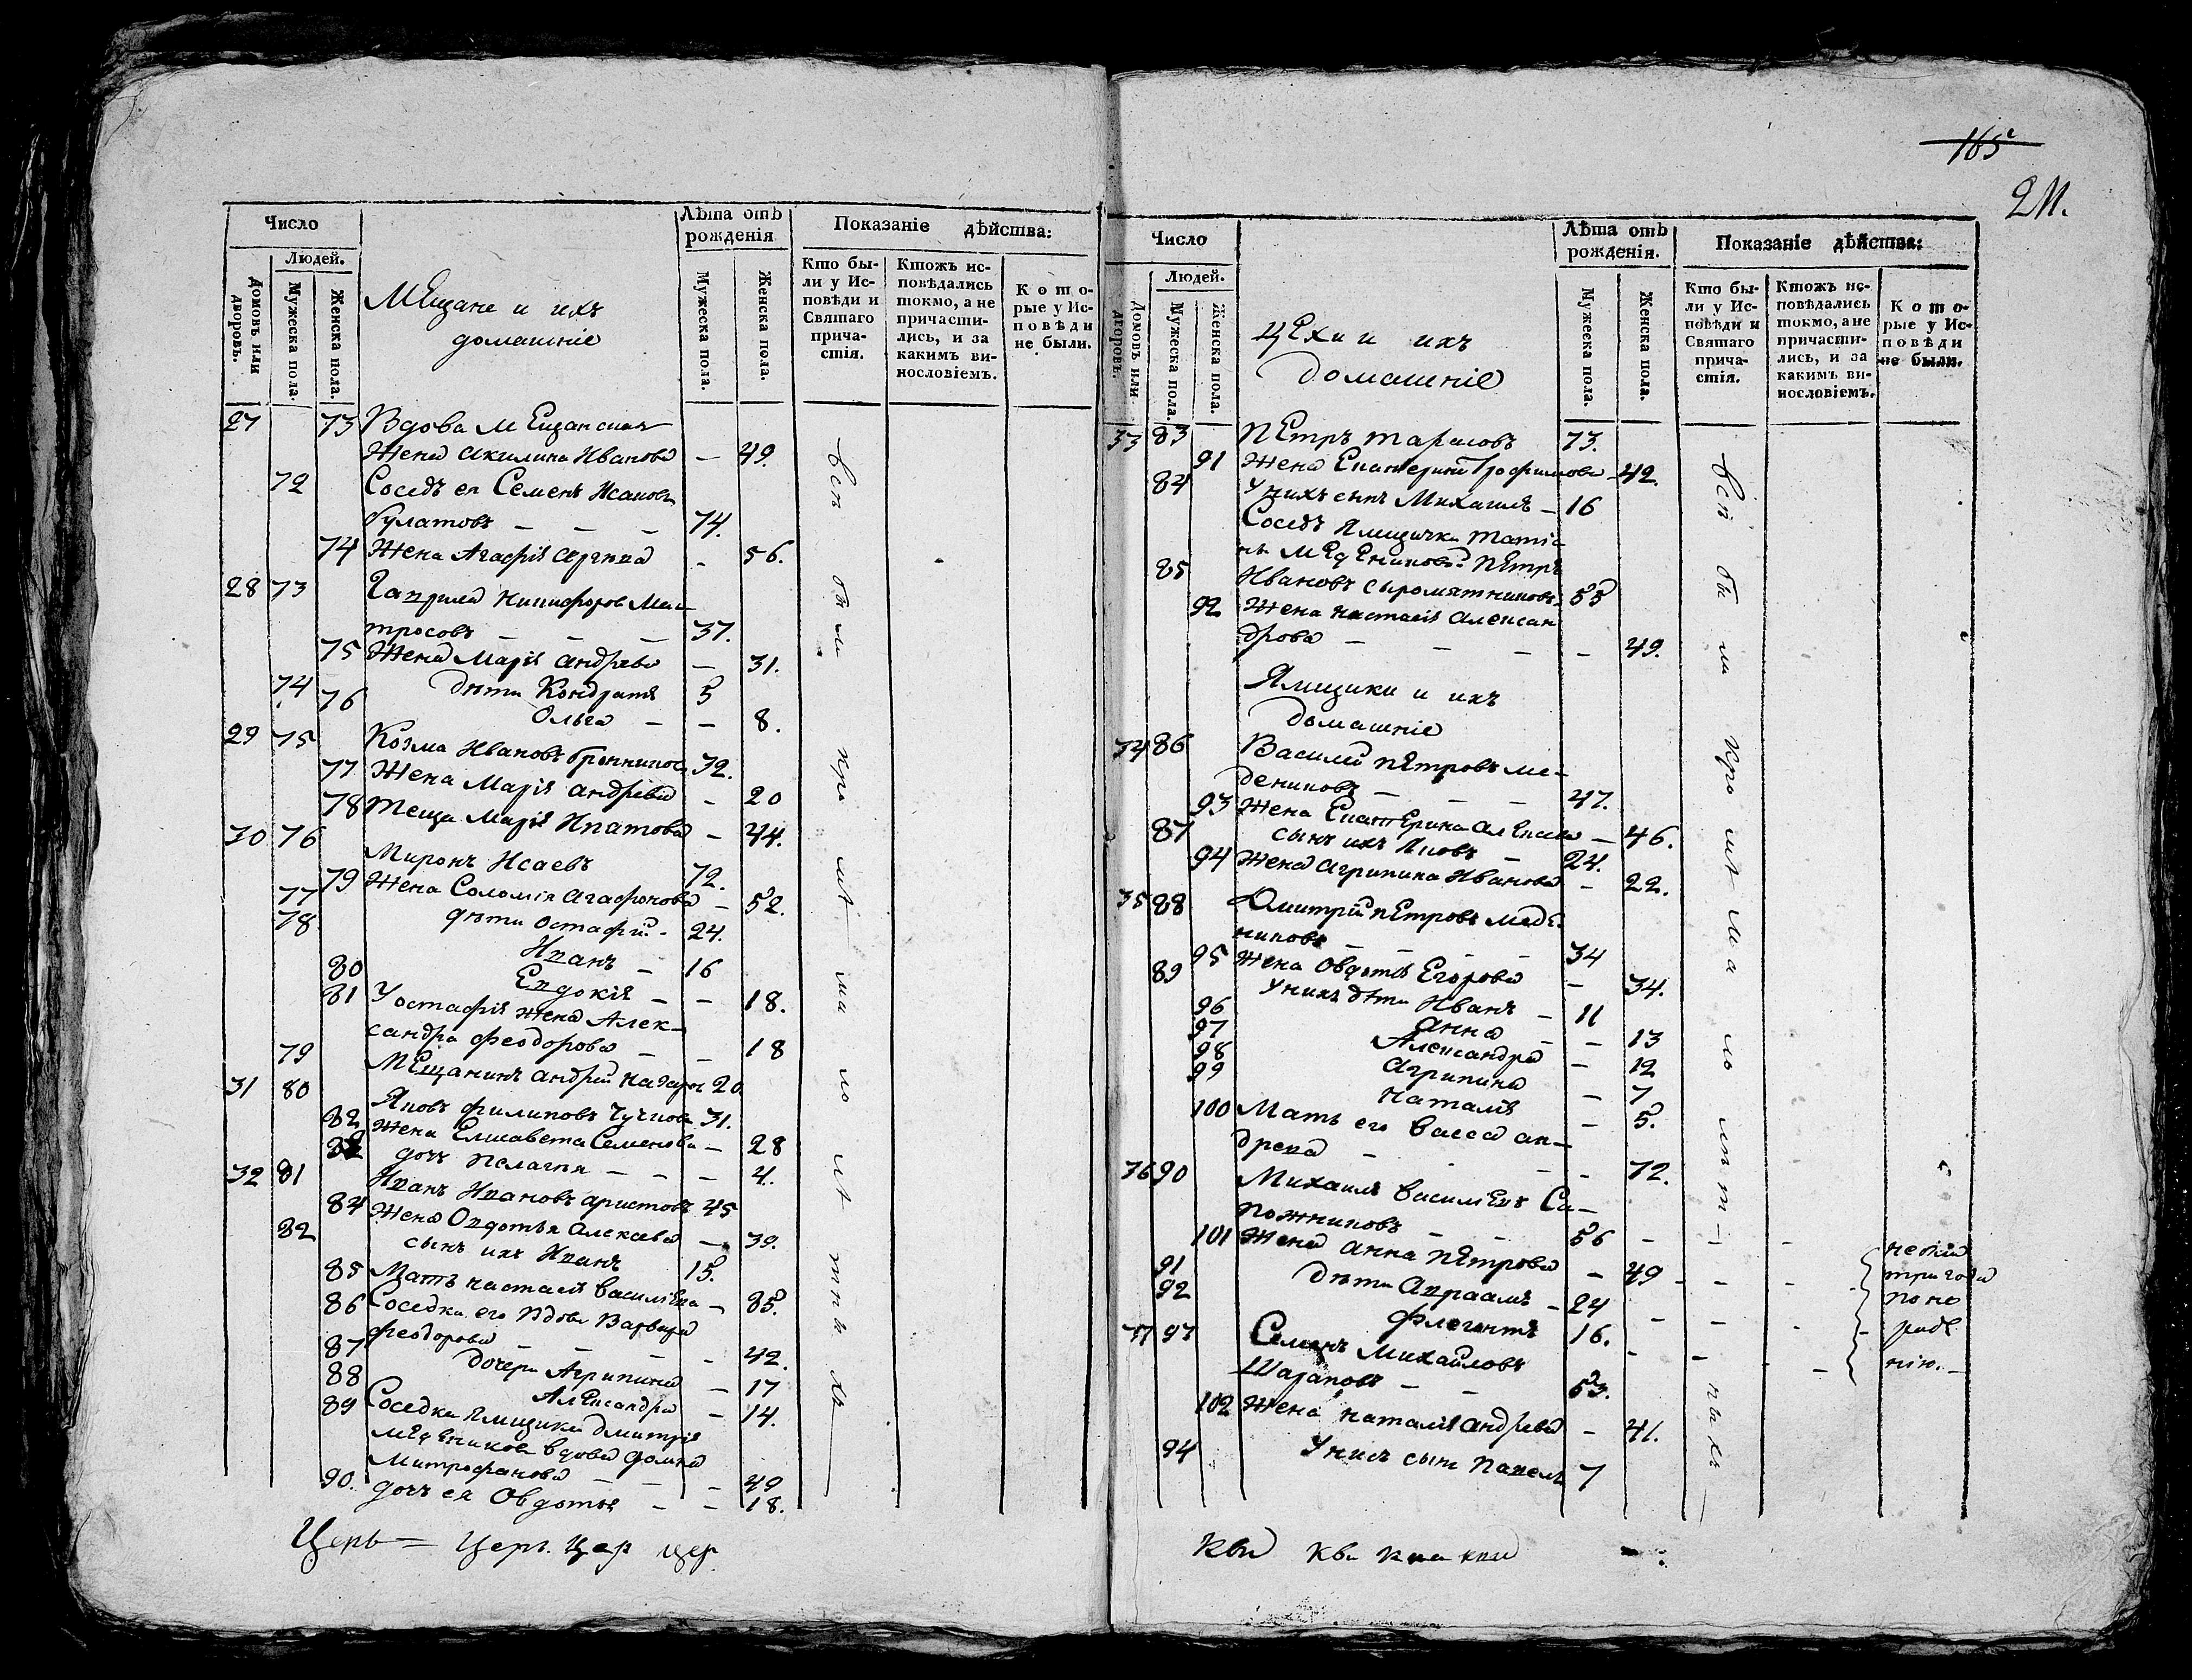 Число
Людей.
Домовъ или дворовъ.
Мужеска пола.
Женска пола.
Мещане и ихъ
домашніе
Лѣта отъ
рожденія
Мужеска пола.
Женска пола.
Показаніе дѣйства:
Кто бы-
ли у Ис-
повѣди и
Святаго
прича-
стія.
Ктожъ ис-
повѣдались
токмо, а не
причасти-
лись, и за
какимъ ви-
нословіемъ.
Кото-
рые у Ис-
повѣди
не были.
27 73 Вдова мещанская
Жена Акилина Иванова — 49.
72 Соседъ ея Семенъ Исаковъ
Булатовъ — — — 74.
74 Жена Агафія Сергеева - 56.
28 73 Гаврила Никифоров Мат
тросовъ — — — 37.
75 Жена Марія Андреева — 31.
74 дѣти Кондратъ 5
76 Ольга — — 8.
29 75 Козма Ивановъ 32.
77 Жена Марія Андреева - 20
78 теща Марія Ипатова — 44.
30 76 Миронъ Исаевъ 72.
79 Жена Соломія Агафонова — 52.
77 дѣти Остафій - 24.
78 Иванъ — 16
80 Евдокія — — 18.
81 У Остафія жена Алек-
сандра Феодорова — — 18
79 Мещанинъ Андрей 20
31 80 Яковъ Филиповъ 31.
82 Жена Елисавета Семенова — 28
дочь Пелагия — — — 4.
32 81 Иванъ Ивановъ Аристовъ 45
84 Жена Овдотья Алексева — 39.
82 сынъ ихъ Иванъ 15.
85 Мать Настасія Василіева — 85.
86 Соседка его вдова Варвара
Феодорова — — — - 42.
87 дочери Агрипина — 17
88 Александра — 14.
89 Соседка ямщика Дмитрія
Меденикова вдова Домна
Митрофанова — — - 49
90. дочь ея Овдотья — — 18.
всѣ были кро мѣ ма ло лѣ тнихъ
Церь = Церь. Цер цер.
165
211.
Число
Людей.
Домовъ или дворовъ.
Мужеска пола.
Женска пола.
Цехи и ихъ
домашніе
Лѣта отъ
рожденія.
Мужеска пола.
Женска пола.
Показаніе дѣйства:
Кто бы-
ли у Ис-
повѣди и
Святаго
прича-
стія.
Ктожъ ис-
повѣдались
токмо, а не
причасти-
лись, и за
какимъ ви-
нословіемъ.
Кото-
рые у Ис-
повѣди
не были.
33 83 Петръ Тарасовъ 73.
91 Жена Екатерина Трофимова - 42.
84 У нихъ сынъ Михаилъ — 16
Соседъ ямщички Татіа
ны Медениковой Петръ
85 Ивановъ Сыромятниковъ. 55
92 Жена Настасія Алексан
дрова — — — - 49.
Ямщики и ихъ
домашніе
34 86 Василей Петровъ Ме-
дениковъ — — — 47.
93 Жена Екатерина Алексева — 46.
87 сынъ ихъ Яковъ — 24.
94 Жена Агрипина Иванова - 22.
35 88 Дмитрій Петровъ Меде
никовъ — — — — 34
95 Жена Овдотья Егорова — 34.
89 У нихъ дѣти Иванъ — 11
96 Анна — — 13
97 Александра — 12
98 Агрипина — 7
99 Наталія — 5.
100 Мать его Васса Ан-
дреева — — - 72.
36 90 Михаилъ Василіевъ Са-
пожниковъ — — 56
101 Жена Анна Петрова — 49
91 дѣти Авраамъ — 24
92 Флегонтъ 16.
не были
три года
по не
раде
нію.
37 93 Семенъ Михайловъ
Шараповъ — — 53.
102 Жена Наталія Андреева — 41.
94 У нихъ сынъ Павелъ 7
всѣ бы ли кро мѣ ма ло лѣ т- ныхъ
ква кви ква ква